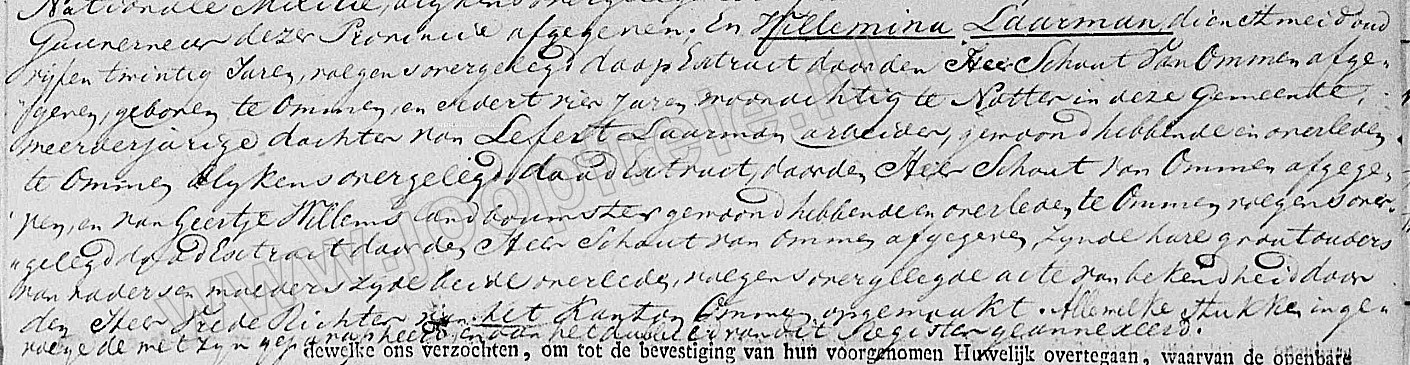 Nationale Militie, blykens overgelegd
Gouverneur dezer Provincie afgegeven. En Willemina Laarman, dienstmeid oud
vyf en twintig Jaren, volgens overgelegd doop Extract door den Heer Schout van Ommen afge„
„geven, geboren te Ommen, en sedert vier Jaren woonachtig te Notter in deze Gemeente,
meerderjarige dochter van Lefert Laarman arbeider, gewoond hebbende en overleden
te Ommen blykens overgelegd dood extract, door den Heer Schout van Ommen afgege„
„ven, en van Geertje Willems landbouwster gewoond hebbende en overleden te Ommen volgens over„
„gelegd dood Extract door den Heer Schout van Ommen afgegeven, Zynde hare grootouders
van vaders en moeders zyde beide overleden, volgens overgelegde acte van bekendheid door
den Heer Vrede Richter van het Kanton Ommen opgemaakt. Alle welke stukken inge„
volge de wet zyn geparapheerd, en aan het dubbeld van dit Register geannexeerd.
dewelke ons verzochten, om tot de bevestiging van hun voorgenomen Huwelijk overtegaan, waarvan de openbare
www.jooplicie.nl